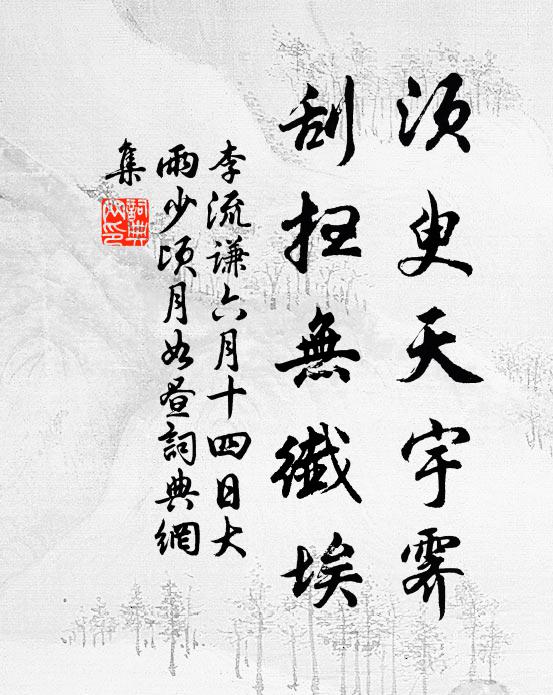 須臾天宇霽
刮扫無纖埃
李流謙六月十四日大
雨少頃月如晝詞典網
集